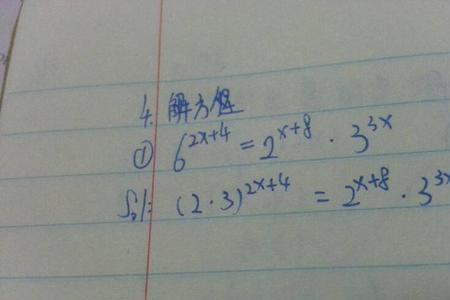 4. 解方程
① 6^{2x+4} = 2^{x+8} · 3^{3x}
Sol: (2·3)^{2x+4} = 2^{x+8} · 3^{3x}